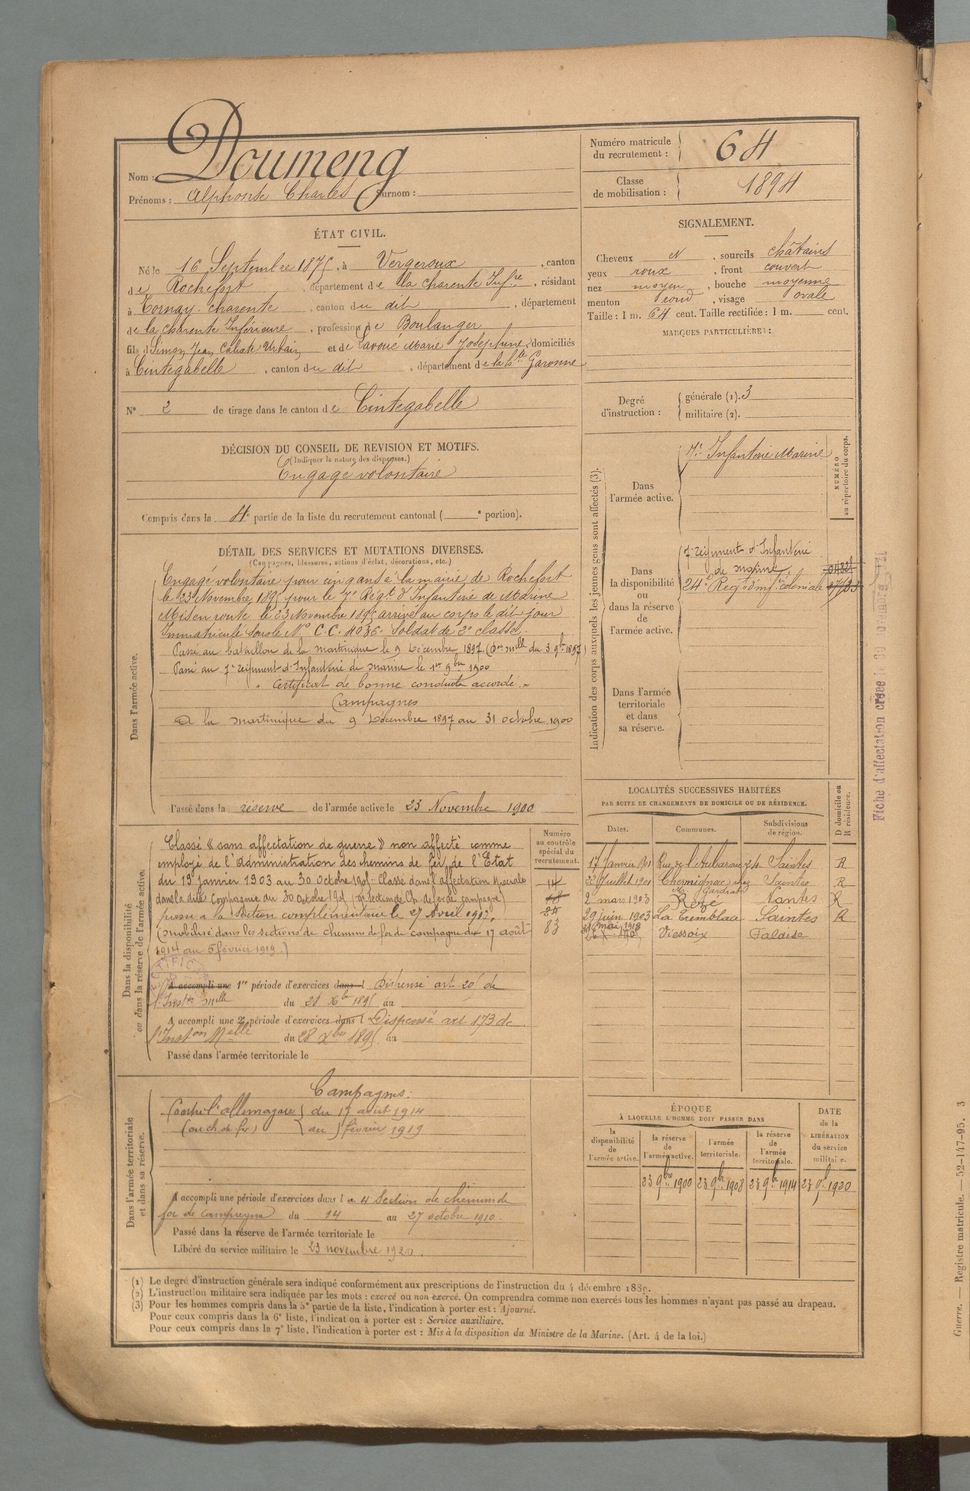 Nom : Doumeng
Prénoms : Alphonse Charles Surnom :
Numéro matricule du recrutement : 64
Classe de mobilisation : 1894
ÉTAT CIVIL.
Né le 16 Septembre 1875, à Vergeroux, canton
de Rochefort, département de la Charente Infre, résidant
à Tonnay-charente, canton du dit, département
de la Charente Inférieure, profession de Boulanger
fils de Simon Jean et de Marie Joséphine, domiciliés
à Cintegabelle, canton du dit, département de la Hte Garonne
N° 2 de tirage dans le canton de Cintegabelle
SIGNALEMENT.
Cheveux N, sourcils châtains
yeux roux, front couvert
nez moyen, bouche moyenne
menton rond, visage ovale
Taille : 1 m. 64 cent. Taille rectifiée : 1 m. cent.
MARQUES PARTICULIÈRES :
Degré d'instruction : générale (1). 3
militaire (2).
DÉCISION DU CONSEIL DE REVISION ET MOTIFS.
(Indiquer la nature des dispenses.)
Engagé volontaire
Compris dans la 4e partie de la liste du recrutement cantonal ( e portion).
DÉTAIL DES SERVICES ET MUTATIONS DIVERSES.
(Campagnes, blessures, actions d'éclat, décorations, etc.)
Dans l'armée active.
Engagé volontaire pour cinq ans à la mairie de Rochefort
le 23 Novembre 1895 pour le 7e Régt d'Infanterie de Marine
Mis en route le 23 Novembre 1895 arrivé au corps le dit jour
Immatriculé sous le N° C.C. 4036. Soldat de 2e classe.
Passé au bataillon de la Martinique le 9 Décembre 1897 (Don mlle du 3 9bre 1897)
Passé au 7e régiment d'Infanterie de marine le 1er 9bre 1900
Certificat de bonne conduite accordé.
Campagnes
A la Martinique du 9 Décembre 1897 au 31 octobre 1900
Passé dans la réserve de l'armée active le 23 Novembre 1900
Indication des corps auxquels les jeunes gens sont affectés (3).
NUMÉRO au répertoire du corps.
Dans l'armée active.
7e Infanterie Marine
Dans la disponibilité ou dans la réserve de l'armée active.
7e régiment d'Infanterie de marine
24e Regt d'Infie coloniale
Dans l'armée territoriale et dans sa réserve.
LOCALITÉS SUCCESSIVES HABITÉES
PAR SUITE DE CHANGEMENTS DE DOMICILE OU DE RÉSIDENCE.
Dates. Communes. Subdivisions de région. D domicile ou R résidence.
17 Janvier 1901 Saintes R
22 Juillet 1901 Saintes R
2 mars 1903 Rezé Nantes R
29 juin 1903 La Tremblade Saintes R
Viessoix Falaise
Dans la disponibilité ou dans la réserve de l'armée active.
Numéro au contrôle spécial du recrutement.
83
Classé "sans affectation de guerre" non affecté comme
employé de l'administration des chemins de fer de l'Etat
du 19 janvier 1903 au 30 octobre 1905. Classé dans l'affectation spéciale
passé à la section complémentaire le 27 Avril 1912.
(mobilisé dans les sections de chemin de fer de campagne du 17 août
1914 au 5 février 1919.)
A accompli une 1re période d'exercices dans l Dispensé art 20 de
l'Inston Mlle du 28 Xbre 1895 au
A accompli une 2e période d'exercices dans l Dispensé art 173 de
l'Inston Mlle du 28 Xbre 1895 au
Passé dans l'armée territoriale le
Dans l'armée territoriale et dans sa réserve.
Campagnes :
Contre l'allemagne du 17 aout 1914
(ou ch de fer) au 5 février 1919
A accompli une période d'exercices dans l a 4 Section de chemins de
fer de campagne du 14 au 27 octobre 1910
Passé dans la réserve de l'armée territoriale le
Libéré du service militaire le 23 novembre 1920.
ÉPOQUE
À LAQUELLE L'HOMME DOIT PASSER DANS
la disponibilité de l'armée active. la réserve de l'armée active. l'armée territoriale. la réserve de l'armée territoriale. DATE de la LIBÉRATION du service militaire.
23 9bre 1900 23 9bre 1908 23 9bre 1914 23 9bre 1920
(1) Le degré d'instruction générale sera indiqué conformément aux prescriptions de l'instruction du 4 décembre 1889.
(2) L'instruction militaire sera indiquée par les mots : exercé ou non exercé. On comprendra comme non exercés tous les hommes n'ayant pas passé au drapeau.
(3) Pour les hommes compris dans la 5e partie de la liste, l'indication à porter est : Ajourné.
Pour ceux compris dans la 6e liste, l'indication à porter est : Service auxiliaire.
Pour ceux compris dans la 7e liste, l'indication à porter est : Mis à la disposition du Ministre de la Marine. (Art. 4 de la loi.)
Fiche d'affectation
Guerre. — Registre matricule. — 52-147-95. 3